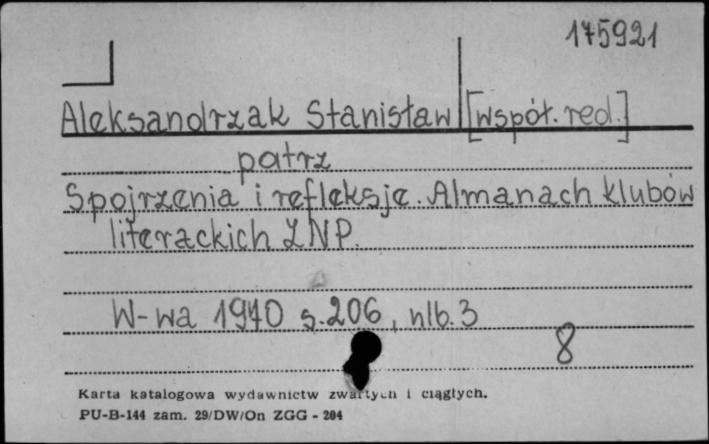 175921
Aleksandrzak Stanisław [współ. red.]
patrz
Spojrzenia i refleksje. Almanach klubów
literackich ZNP.
W-wa 1970 s. 206, nlb. 3
8
Karta katalogowa wydawnictw zwartych i ciągłych.
PU-B-144 zam. 29/DW/On ZGG - 204